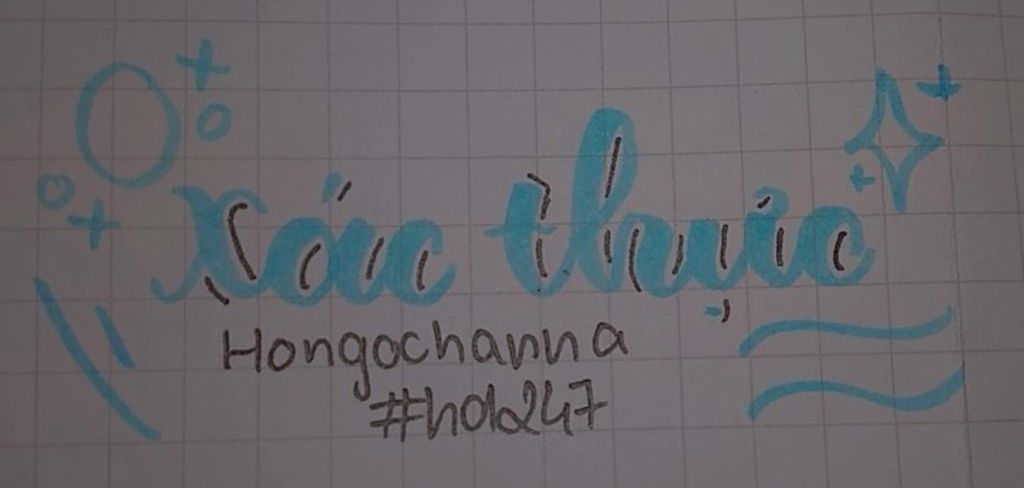 Xác thực
Hongochanna
#hdz247